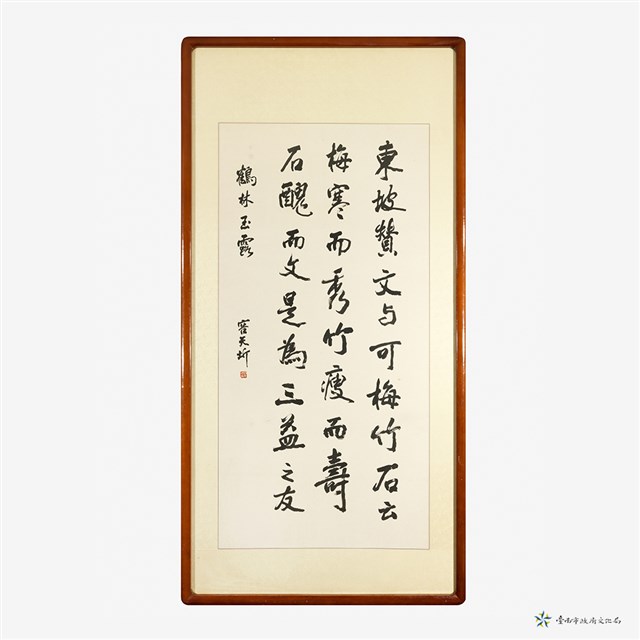 東坡贊文与可梅竹石云
梅寒而秀竹瘦而壽
石醜而文是為三益之友
鶴林玉露
天圻
臺南市政府文化局